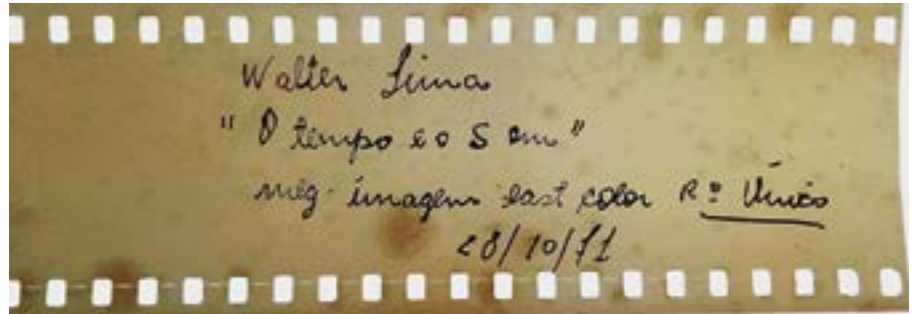 Walter Lima
" O tempo e o S om "
neg. imagem east color Rº Único
28/10/71